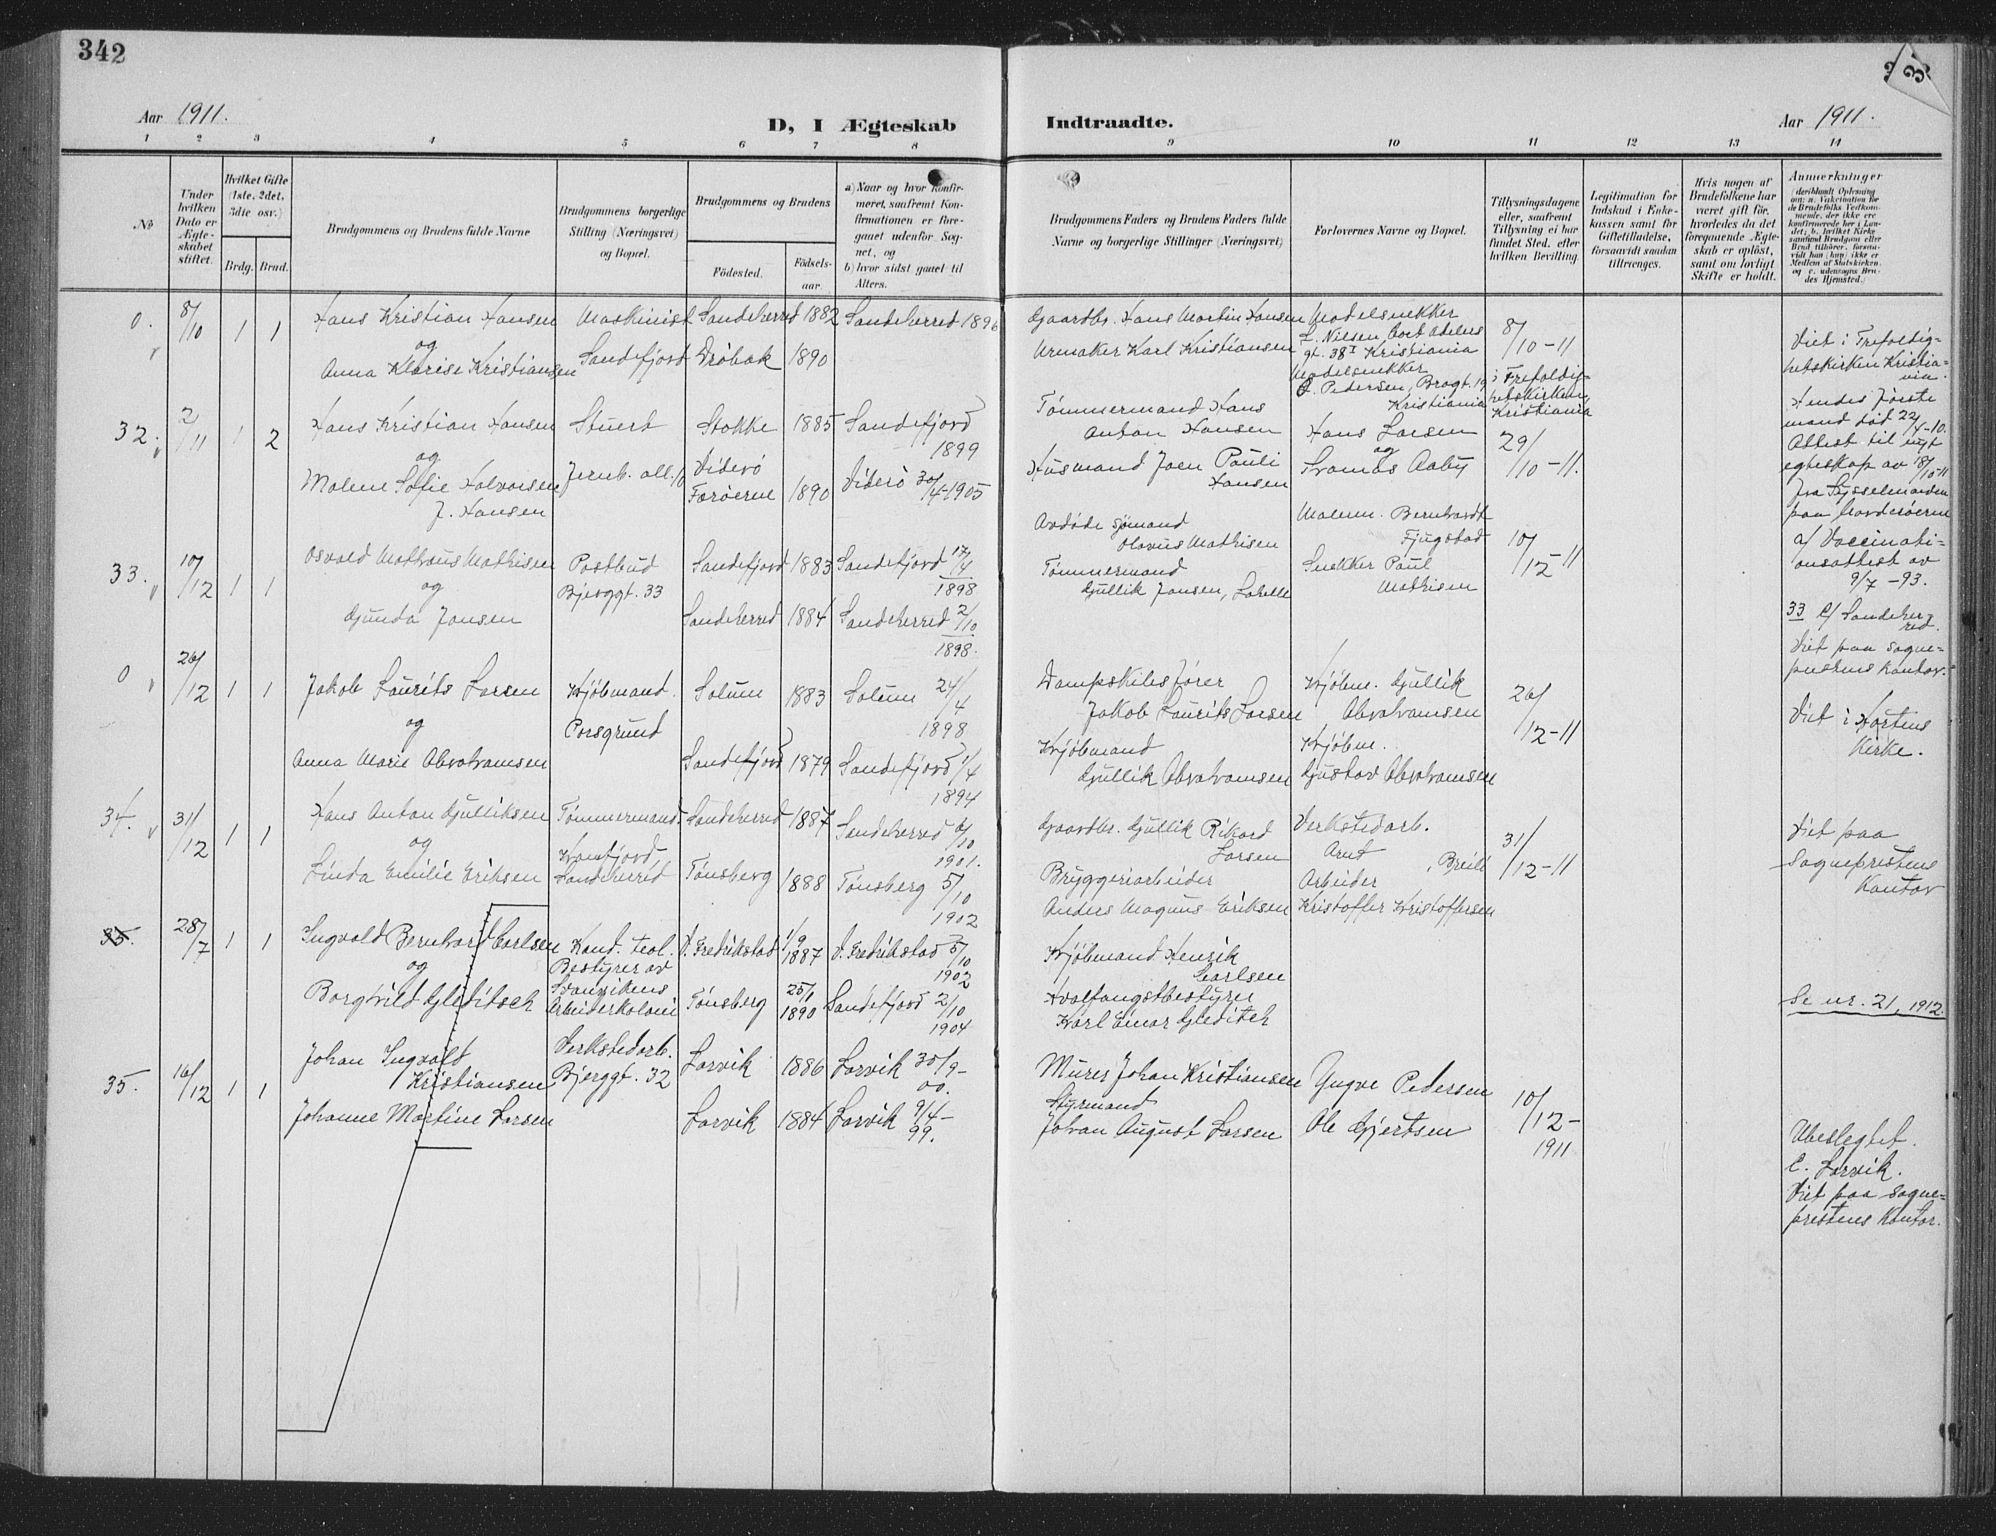 342
Aar 1911.
D, I Ægteskab
Indtraadte.
Aar 1911.
1 2 3 4 5 6 7 8 9 10 11 12 13 14
No
Under hvilken Dato er Ægteskabet stiftet.
Hvilket Gifte (1ste, 2det, 3die osv.)
Brdg. Brud.
Brudgommens og Brudens fulde Navne
Brudgommens borgerlige Stilling (Næringsvei) og Bopæl.
Brudgommens og Brudens
Fødested.
Fødselsaar.
a) Naar og hvor konfirmeret, saafremt Konfirmationen er foregaaet udenfor Sognet, og
b) hvor sidst gaaet til Alters.
Brudgommens Faders og Brudens Faders fulde Navne og borgerlige Stillinger (Næringsvei)
Forlovernes Navne og Bopæl.
Tillysningsdagene eller, saafremt Tillysning ei har fundet Sted, efter hvilken Bevilling.
Legitimation for Indskud i Enkekassen samt for Giftetilladelse, forsaavidt saadan tiltrænges.
Hvis nogen af Brudefolkene har været gift før, hvorledes da det foregaaende Ægteskab er opløst, samt om lovligt Skifte er holdt.
Anmerkninger
0. 8/10 1 1
Hans Kristian Hansen
og
Anna Klarise Kristiansen
Maskinist
Sandefjord
Sandeherred 1882 Sandeherred 1896
Drøbak 1890
Gaardbr. Hans Martin Hansen
Urmaker Karl Kristiansen
Modelsnekker
L. Nilsen, Cort Adelers
gt. 38 I Kristiania
Modelsnekker
Pedersen, Bragt. 19
Kristiania
8/10-11
i Trefoldighetskirken,
Kristiania
Viet i Trefoldighetskirken
Kristiania.
32. 2/11 1 2
Hans Kristian Hansen
og
Malene Sofie Halvorsen
f. Hansen
Stuert
Jernb. all. 10
Stokke 1885 Sandefjord
1899
Viderø
Færøerne 1890 Viderø 30/4-1905
Tømmermand Hans
Anton Hansen
Husmand Joen Pauli
Hansen
Hans Larsen
og
Thomas Aaby
29/10-11.
Hendes første
mand død 22/4-10.
Attest til nyt
egteskap av 18/10-11
fra Sysselmanden
paa Norderøerne
33. 10/12 1 1
Osvald Mathæus Mathisen
og
Gunda Jansen
Postbud
Bjerggt. 33
Sandefjord 1883 Sandefjord 17/4
1898
Sandeherred 1884 Sandeherred 2/10
1898.
Avdøde sjømand
Olavus Mathisen
Tømmermand
Gullik Jansen
Bernhardt
Fjugstad
Snekker Paul
Mathisen
10/12-11
a/ Vaccinationsattest
av
9/7-93.
33 c/ Sandeherred.
Viet paa sogneprestens
kontor.
0 26/12 1 1
Jakob Laurits Larsen
og
Anna Marie Abrahamsen
Kjøbmand.
Porsgrund
Solum 1883 Solum 24/4
1898
Sandefjord 1879 Sandefjord 1/4
1894
Dampskibsfører
Jakob Laurits Larsen
Kjøbmand
Gullik Abrahamsen
Kjøbm. Gullik
Abrahamsen
Kjøbm.
Gustav Abrahamsen
26/12-11
Viet i Hortens
Kirke.
34. 31/12 1 1
Hans Anton Gulliksen
og
Linda Emilie Eriksen
Tømmermand.
Sandeherred
Sandeherred 1887 Sandeherred 6/10
1901.
Tønsberg 1888 Tønsberg 5/10
1902
Gaardbr. Gullik Rikard
Larsen
Bryggeriarbeider
Anders Magnus Eriksen
Verkstedarb.
Arnt
Arbeider
Kristoffer Kristoffersen
31/12-11
Viet paa
Sogneprestens
Kontor
35. 28/7 1 1
Ingvald Bernhard Carlsen
og
Borghild Gleditsch
Kand. teol.
Bestyrer av
Svanvikens
Arbeiderkoloni
V. Fredrikstad 1/9 1887 V. Fredrikstad 5/10
1902
Tønsberg 25/1 1890 Sandefjord 2/10
1904
Kjøbmand Henrik
Carlsen
Hvalfangstbestyrer
Karl Einar Gleditsch
Se nr. 21, 1912.
35. 16/12 1 1
Johan Ingvalt
Kristiansen
Johanne Martine Larsen
Verkstedarb.
Bjerggt. 32
Larvik 1886 Larvik 30/9-00.
Larvik 1884 Larvik 9/4-99.
Murer Johan Kristiansen
Styrmand
Johan August Larsen
Yngve Pedersen
Ole Gjertsen
10/12-1911
Ubeslegtet.
C. Larvik.
Viet paa sogneprestens
Kontor.